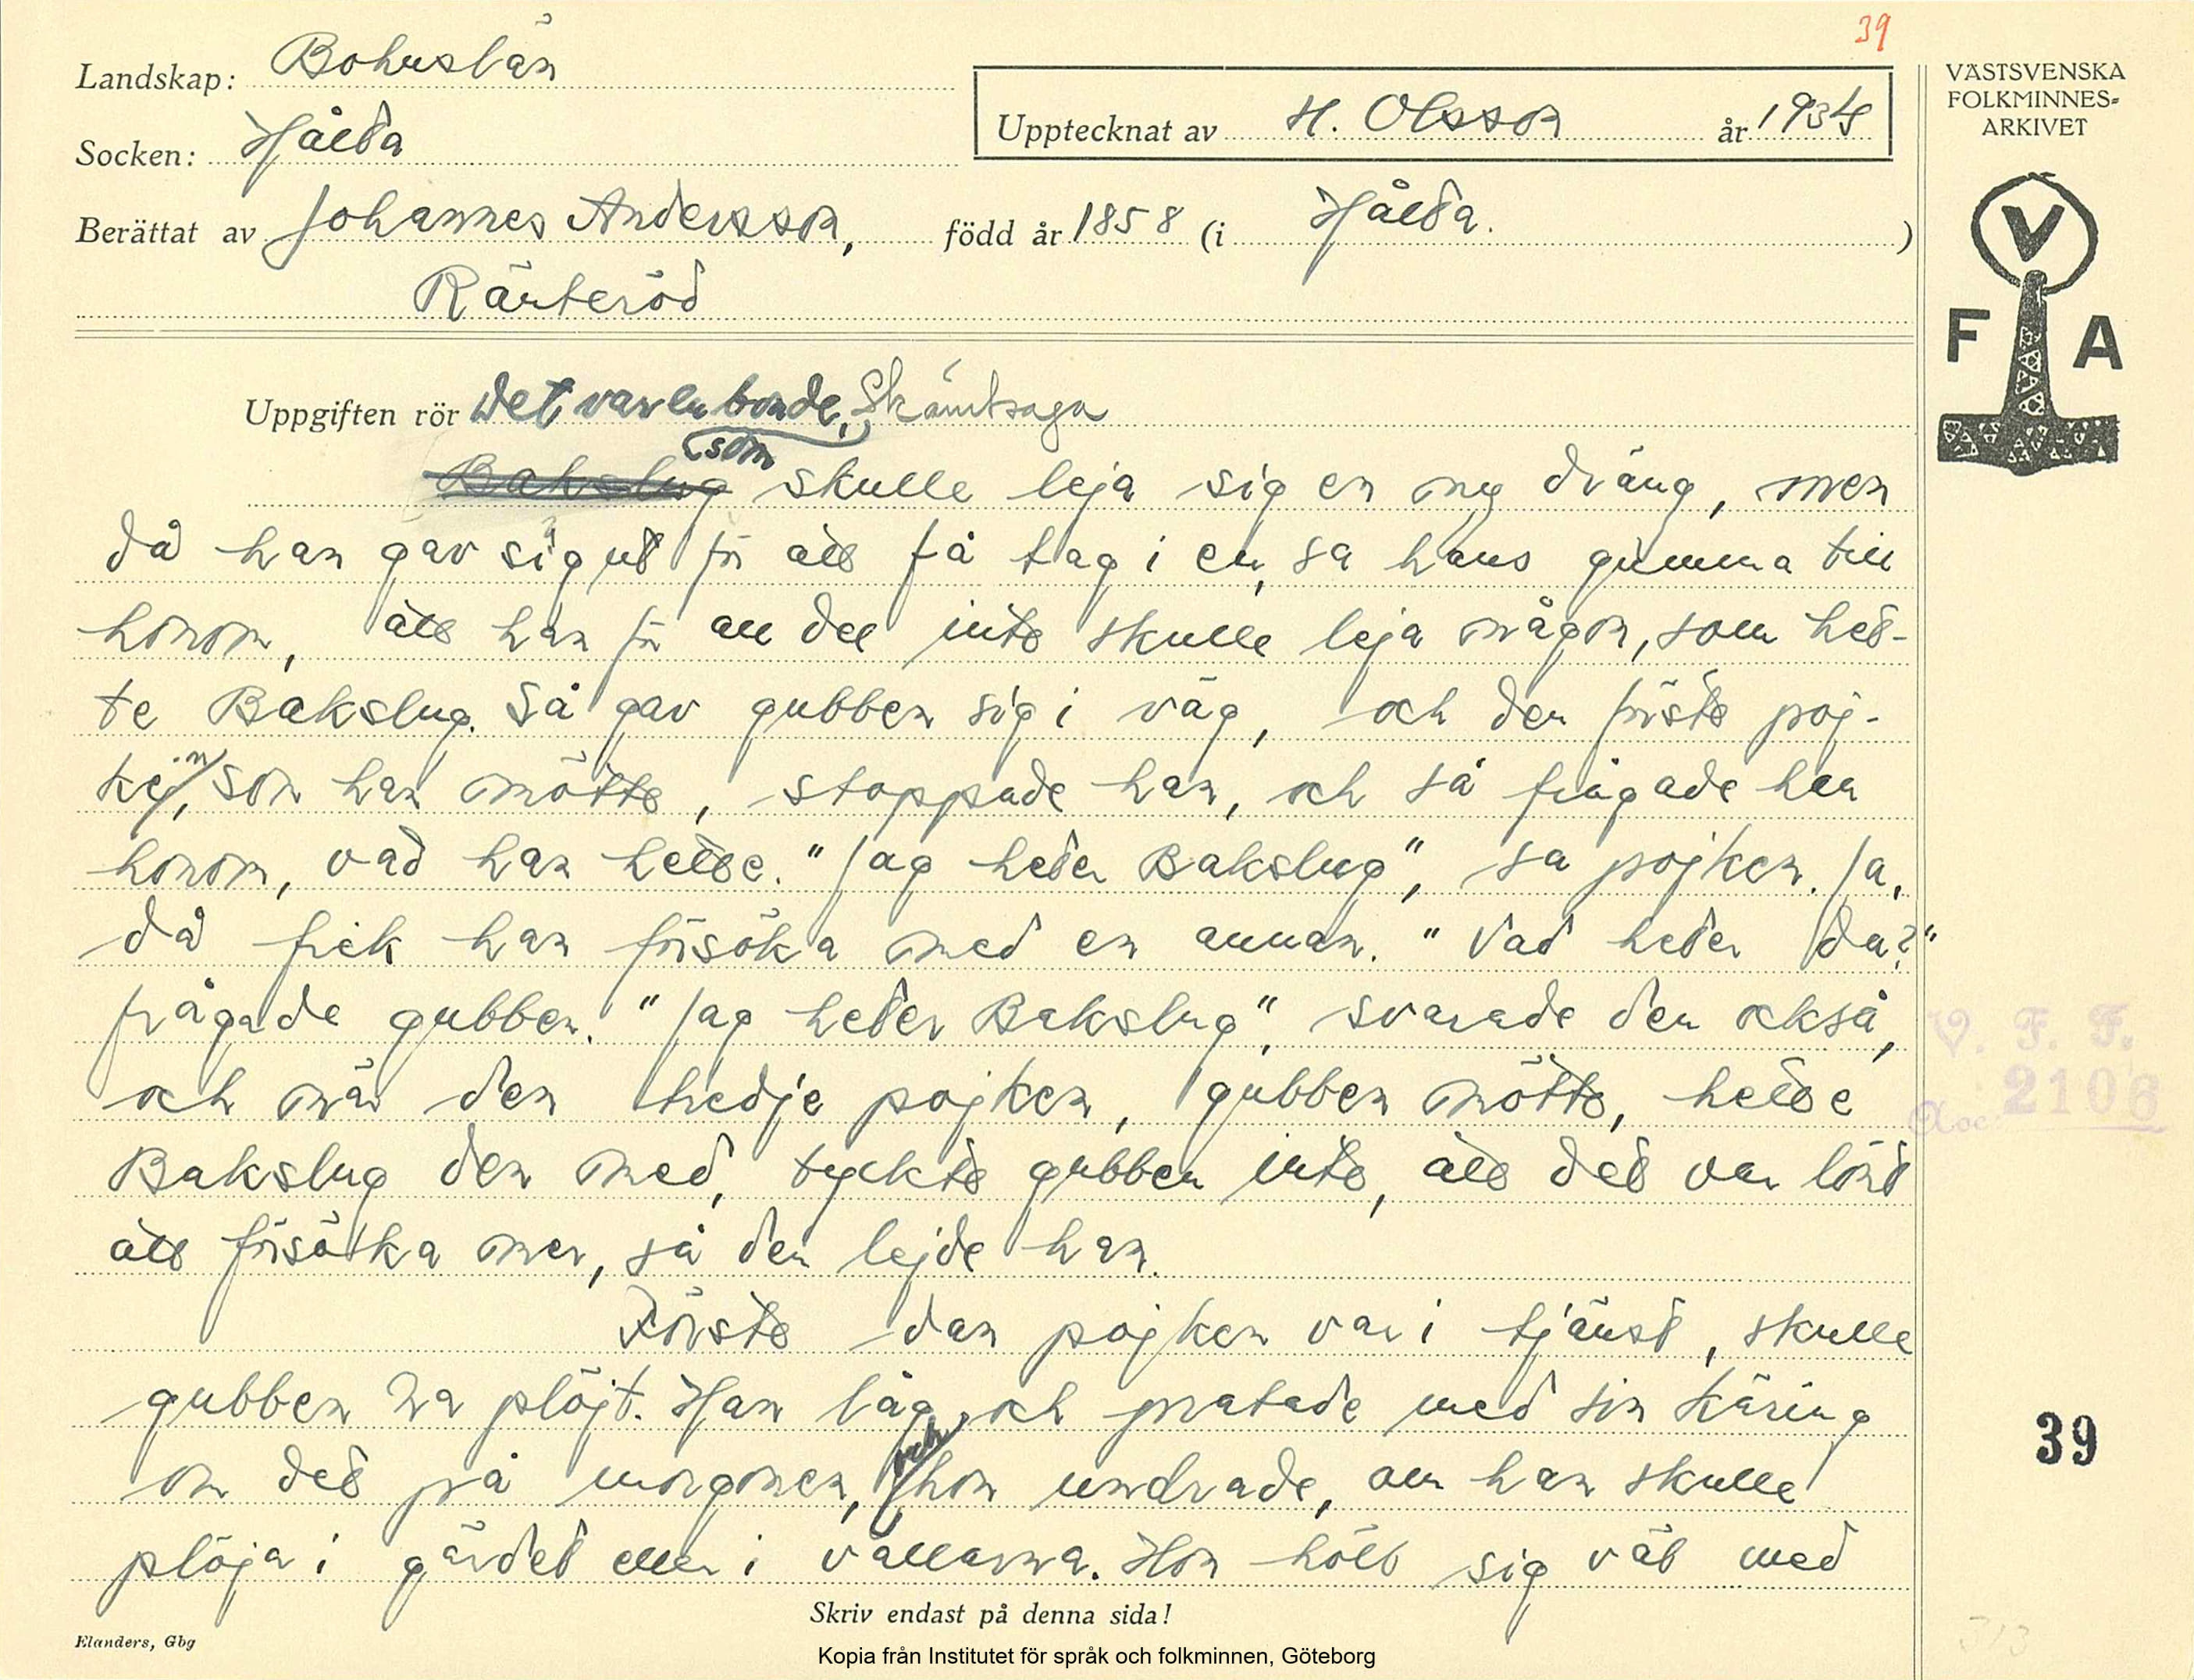 39
Landskap: Bohuslän
Socken: Hålta
Upptecknat av H. Olsson år 1934
Berättat av Johannes Andersson, född år 1858 (i Hålta.)
Ränteröd
VÄSTSVENSKA
FOLKMINNES-
ARKIVET
V
F A
Uppgiften rör Det var en bonde, Skämtsaga
som
Bakslug skulle leja sig en ny dräng, men
då han gav sig ut för att få tag i en, sa hans gumma till
honom, att han för all del inte skulle leja någon, som het-
te Bakslug. Så gav gubben sig i väg, och den förste poj-
ken, som han mötte, stoppade han, och så frågade han
honom, vad han hette. "Jag heter Bakslug", sa pojken. Ja,
då fick han försöka med en annan. "Vad heter du?"
frågade gubben. "Jag heter Bakslug", svarade den också,
och när den tredje pojken, gubben mötte, hette
Bakslug den med, tyckte gubben inte, att det var lönt
att försöka mer, så den lejde han.
Förste dan pojken var i tjänst, skulle
gubben ha plöjt. Han låg och pratade med sin käring
om det på morgonen, och hon undrade, om han skulle
plöja i gärdet eller i vallarna. Hon höll sig väl med
V. F. F.
Acc. 2106
39
313
Skriv endast på denna sida!
Elanders, Gbg
Kopia från Institutet för språk och folkminnen, Göteborg